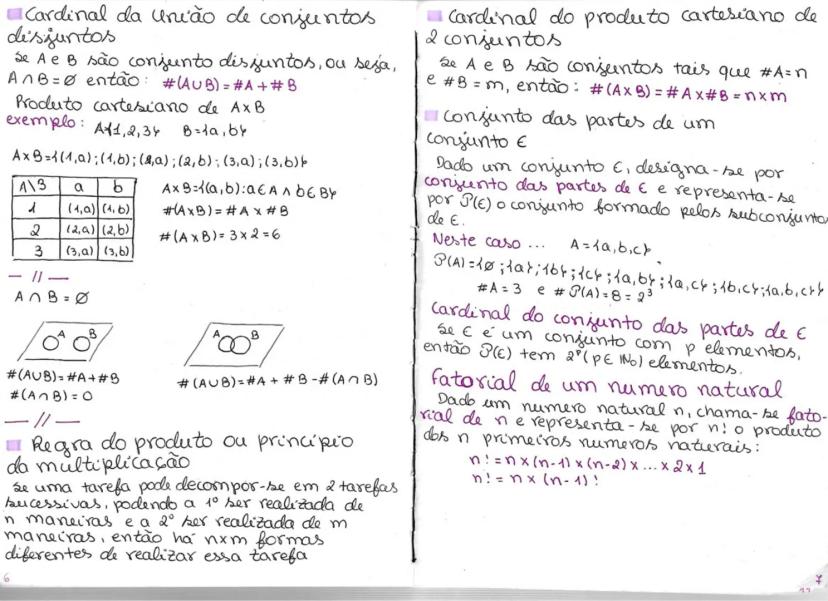 Cardinal da união de conjuntos
disjuntos
Se A e B são conjunto disjuntos, ou seja,
A∩B=∅ então: #(A∪B)=#A+#B
Produto cartesiano de AxB
exemplo: A{1,2,3} B={a,b}
AxB={(1,a);(1,b);(2,a);(2,b);(3,a);(3,b)}
A\B a b
1 (1,a) (1,b)
2 (2,a) (2,b)
3 (3,a) (3,b)
AxB={(a,b):a∈A ∧ b∈B}
#(AxB)=#A x #B
#(AxB)=3x2=6
— // —
A∩B=∅
A B
A B
#(A∪B)=#A+#B
#(A∩B)=0
#(A∪B)=#A+#B-#(A∩B)
— // —
Regra do produto ou princípio
da multiplicação
Se uma tarefa pode decompor-se em 2 tarefas
sucessivas, podendo a 1º ser realizada de
n maneiras e a 2º ser realizada de m
maneiras, então há nxm formas
diferentes de realizar essa tarefa
6
Cardinal do produto cartesiano de
2 conjuntos
Se A e B são conjuntos tais que #A=n
e #B=m, então: #(AxB)=#Ax#B=nxm
Conjunto das partes de um
conjunto E
Dado um conjunto E, designa-se por
conjunto das partes de E e representa-se
por P(E) o conjunto formado pelos subconjuntos
de E.
Neste caso ... A={a,b,c}
P(A)={∅;{a};{b};{c};{a,b};{a,c};{b,c};{a,b,c}}
#A=3 e #P(A)=8=2³
Cardinal do conjunto das partes de E
Se E é um conjunto com p elementos,
então P(E) tem 2ᵖ(p∈ℕ₀) elementos.
Fatorial de um numero natural
Dado um numero natural n, chama-se fato-
rial de n e representa-se por n! o produto
dos n primeiros numeros naturais:
n!=nx(n-1)x(n-2)x...x2x1
n!=nx(n-1)!
7